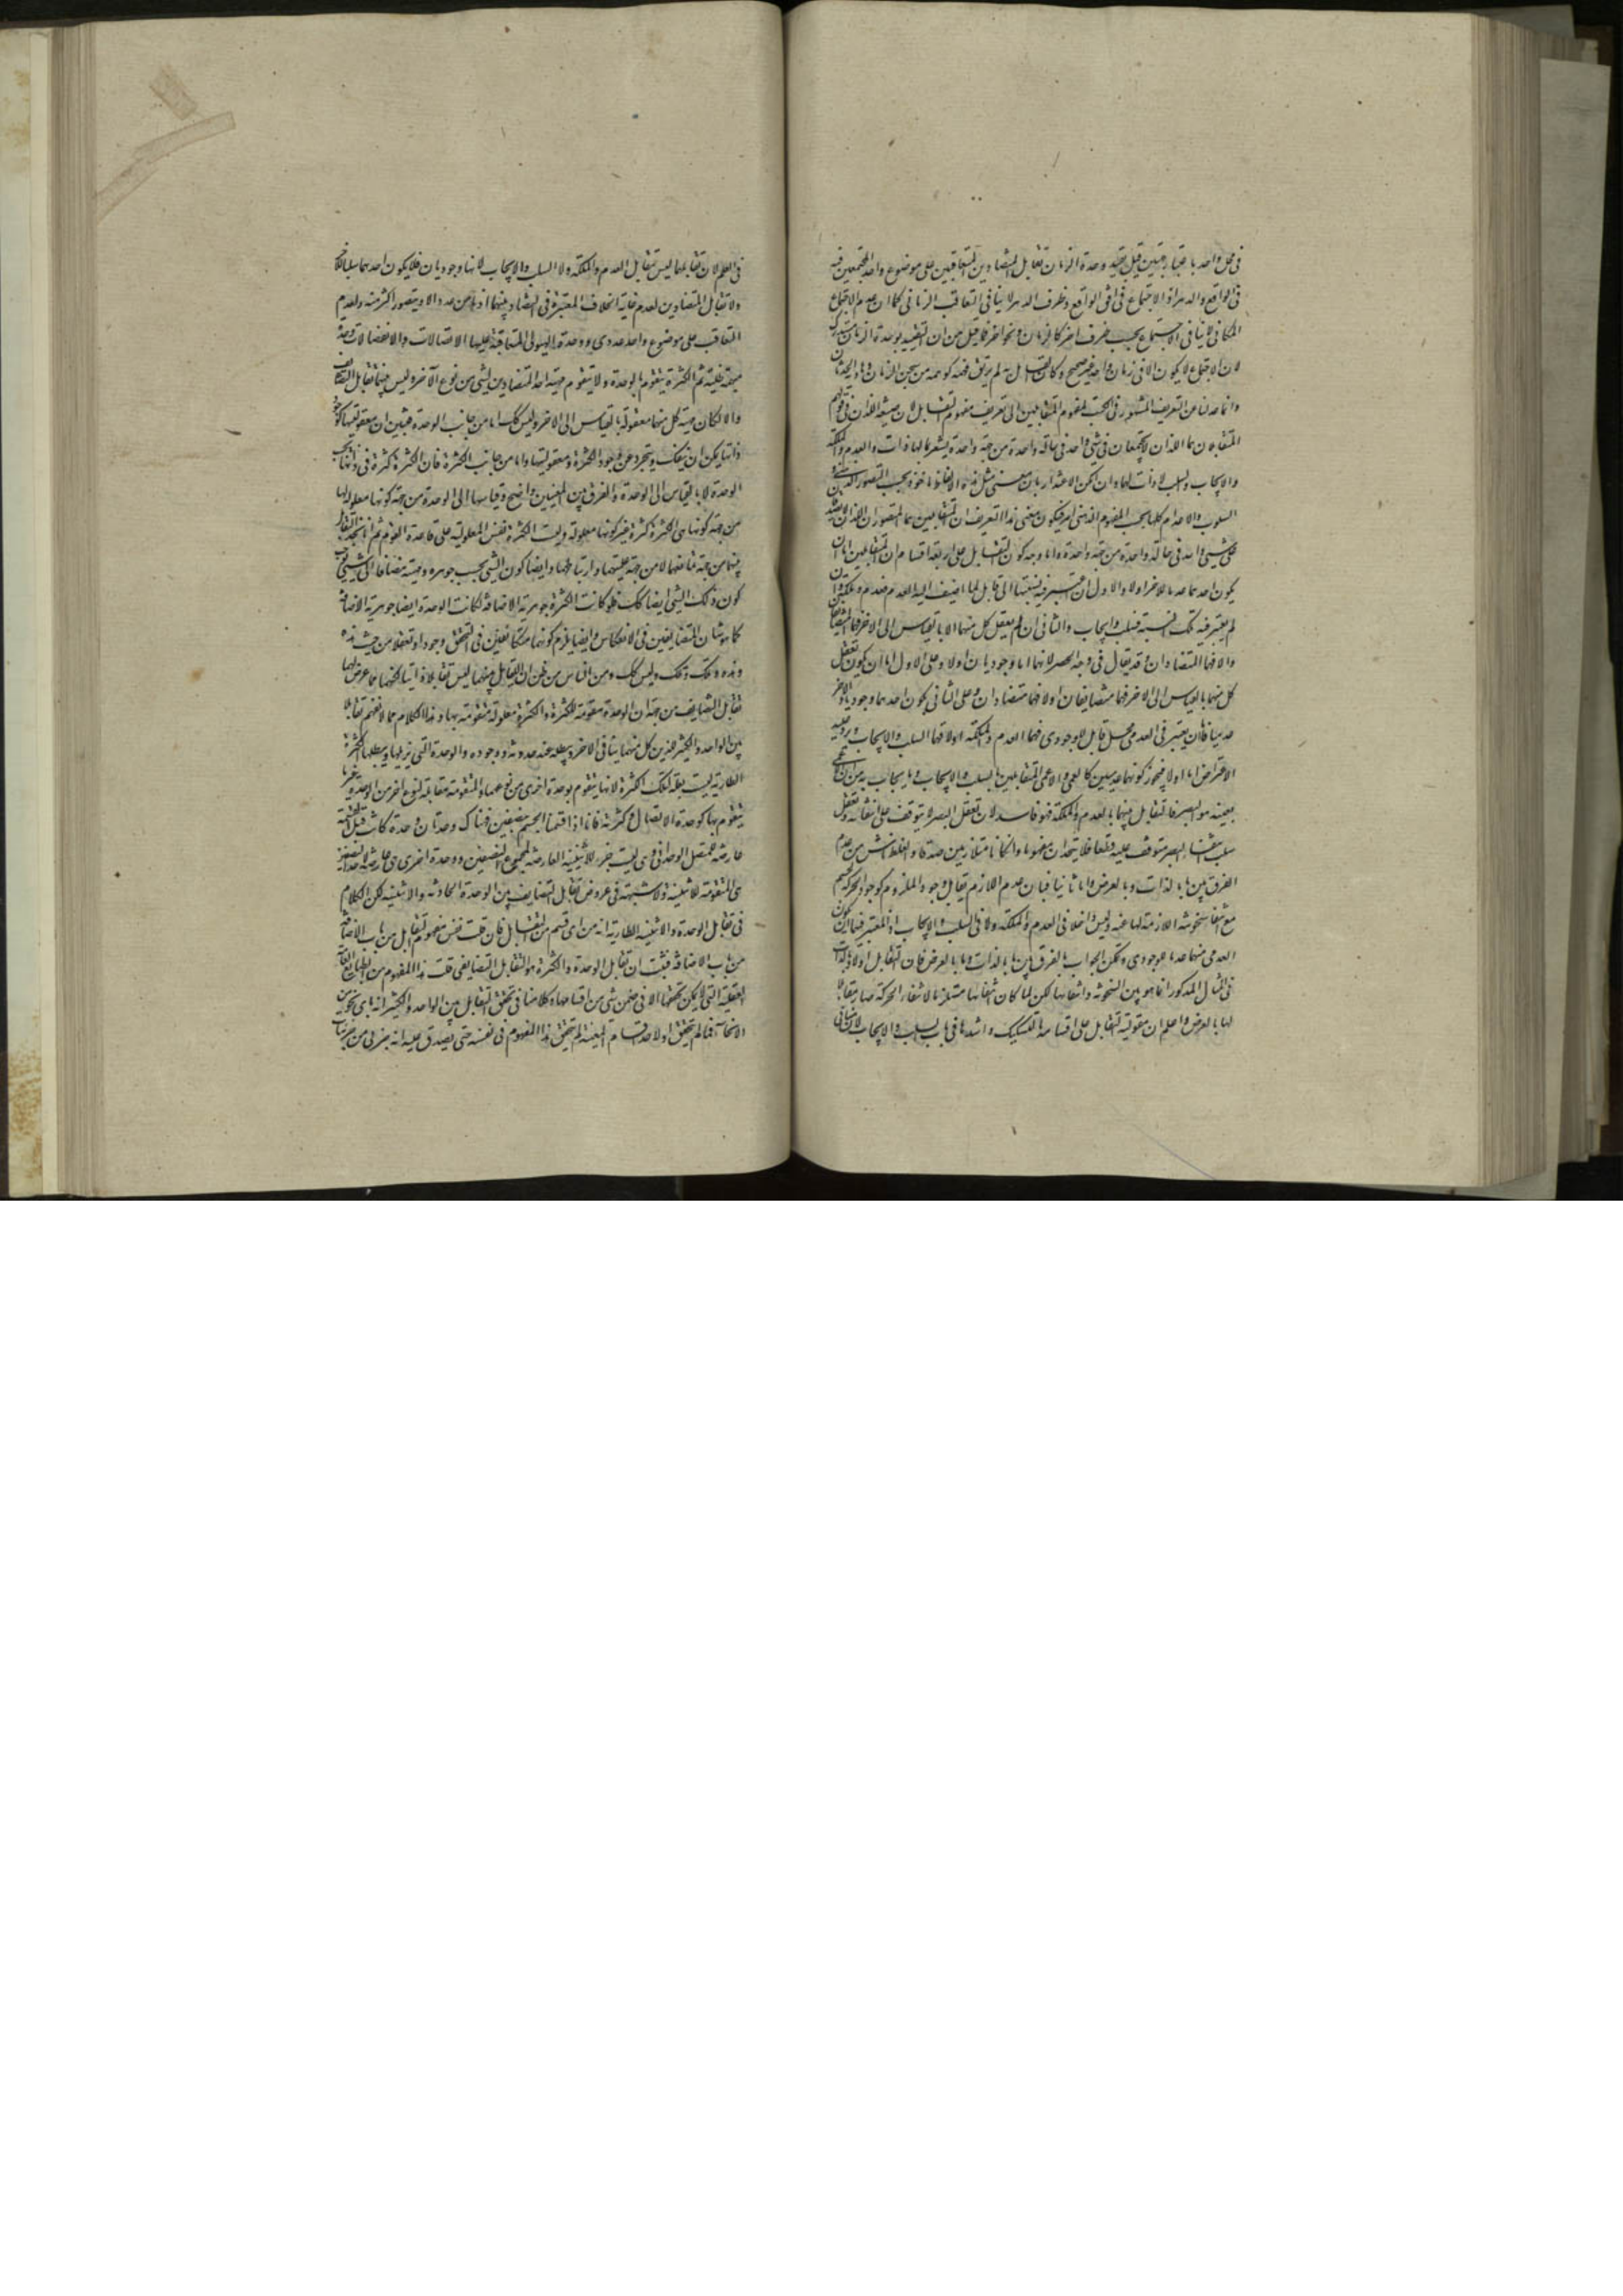 في محل واحد باعتبار جهتين قيل بقيد وحدة الزمان تقابل المتضادين المتعاقبين على موضوع واحد المجتمعين فيه
في الواقع والدهر اذ الاجتماع في افق الواقع وظرف الدهر لا ينافي التعاقب الزماني كما ان عدم الاجتماع
المكاني لا ينافي الاجتماع بحسب ظرف اخر كالزمان ونحو اخر فما قيل من ان التقييد بوحدة الزمان مستدرك
لان الاجتماع لا يكون الا في زمان واحد غير صحيح وكان القائل به لم يرتق فهمه كوهمه من سجن الزمان وهاوية الحدثان
وانما عدلنا عن التعريف المشهور في الكتب لمفهوم المتقابلين الى تعريف مفهوم التقابل لان صيغة اللذان في قولهم
المتقابلان هما اللذان لا يجتمعان في شيء واحد في حالة واحدة من جهة واحدة يشعر بما لهما ذات والعدم والملكة
والايجاب والسلب لا ذات لهما وان امكن الاعتذار بان معنى مثل هذه الالفاظ ماخوذ بحسب التصور الذهني و
السلوب والاعدام كلها بحسب المفهوم الذهني امر فيكون معنى هذا التعريف ان المتقابلين هما المتصوران اللذان لا يصدقان
على شيء واحد في حالة واحدة من جهة واحدة واما وجه كون التقابل على اربعة اقسام ان المتقابلين اما ان
يكون احدهما عدما للاخر اولا والاول ان اعتبر فيه نسبتهما الى قابل لما اضيف اليه العدم فعدم وملكة وان
لم يعتبر فيه تلك النسبة فسلب وايجاب والثاني ان لم يعقل كل منهما الا بالقياس الى الاخر فهما المتضايفان
والا فهما المتضادان وقد يقال في وجه الحصر لانهما اما وجوديان اولا وعلى الاول اما ان يكون تعقل
كل منهما بالقياس الى الاخر فهما متضايفان اولا فهما متضادان وعلى الثاني يكون احدهما وجوديا والاخر
عدميا فاما ان يعتبر في العدمي محل قابل للوجودي فهما العدم والملكة اولا فهما السلب والايجاب ويرد عليه
الاعتراض اما اولا فبجواز كونهما عدميين كالعمى واللاعمى المتقابلين بالسلب والايجاب وما يجاب به من ان اللاعمى
بعينه هو البصر فالتقابل بينهما بالعدم والملكة فهو فاسد لان تعقل البصر لا يتوقف على انتفائه وتعقل
سلب انتفاء البصر متوقف عليه قطعا فلا يتحدان مفهوما وان كانا متلازمين صدقا والغلط انما نشأ من عدم
الفرق بين ما بالذات وما بالعرض واما ثانيا فبان عدم اللازم يقابل وجود الملزوم كوجود الحركة لجسم
مع انتفاء سخونته اللازمة لها عنه وليس داخلا في العدم والملكة ولا في السلب والايجاب اذ المعتبر فيهما ان يكون
العدمي منهما عدما للوجودي ويمكن الجواب بالفرق بين ما بالذات وما بالعرض فان التقابل اولا وبالذات
في المثال المذكور انما هو بين السخونة وانتفائها لكن لما كان انتفائها مستلزما لانتفاء الحركة صار مقابلا
لها بالعرض واعلم ان مقولية التقابل على اقسامه بالتشكيك واشدها في باب السلب والايجاب لان منافي
في العلم لان تقابلهما ليس تقابل العدم والملكة ولا السلب والايجاب لانهما وجوديان فلا يكون احدهما سلبا للآخر
ولا تقابل المتضادين لعدم غاية الخلاف المعتبرة في التضاد بينهما اذ ما من عدد الا ويتصور اكثر منه ولعدم
التعاقب على موضوع واحد عددي ووحدة الهيولى المتعاقبة عليها الاتصالات والانفصالات وحدة
مبهمة ظلية ثم الكثرة يتقوم بالوحدة ولا يتقوم مهية احد المتضادين بشيء من نوع الآخر وليس بينهما تقابل التضايف
والا لكان مهية كل منهما معقولة بالقياس الى الاخر وليس كك اما من جانب الوحدة فتبين ان معقوليتها كوجود
ذاتها يمكن ان ينفك ويتجرد عن وجود الكثرة ومعقوليتها واما من جانب الكثرة فان الكثرة كثرة في ذاتها بسبب
الوحدة لا بالقياس الى الوحدة والفرق بين المعنيين واضح وقياسها الى الوحدة من جهة كونها معلولة لها
من جهة كونها هي الكثرة كثرة غير كونها معلولة وليست الكثرة نفس المعلولية على قاعدة القوم ثم انا نجد التقابل
بينهما من جهة تمانعهما لا من جهة عليتهما وارتباطهما وايضا كون الشيء بحسب جوهره ومهيته مضافا الى شيء يوجب
كون ذلك الشيء ايضا كك فلو كانت الكثرة جوهرية الاضافة لكانت الوحدة ايضا جوهرية الاضافة
كما هو شان المتضايفين في الانعكاس وايضا يلزم كونهما متكافئين في التحقق وجودا وتعقلا من حيث هذه
وهذه وتلك وتلك وليس كك ومن الناس من ظن ان التقابل بينهما ليس تقابلا ذاتيا لكنهما مما عرض لهما
تقابل التضايف من جهة ان الوحدة مقومة للكثرة والكثرة معلولة متقومة بها وهذا الكلام مما لا نفهم تقابلا
بين الواحد والكثير اللذين كل منهما ينافي الاخر ويبطله عند حدوثه ووجوده والوحدة التي تزيلها ويبطلها الكثرة
الطارية ليست علة لتلك الكثرة لانها يتقوم بوحدة اخرى من نوعها والمتقومة مقابلة لنوع اخر من الوحدة وغيرها
يتقوم بها كوحدة الاتصال وكثرته فانا اذا قسمنا الجسم بنصفين فهناك وحدتان وحدة كانت قبل القسمة
عارضة للمتصل الوحداني وهي ليست جزء للاثنينية العارضة لمجموع النصفين ووحدة اخرى هي عارضة لاحد النصفين
هي المتقومة للاثنينية ولا شبهة في عروض تقابل التضايف بين الوحدة الحادثة والاثنينية لكن الكلام
في تقابل الوحدة والاثنينية الطارية انه من اي قسم من التقابل فان قلت نفس مفهوم التقابل من باب الاضافة
من باب الاضافة فثبت ان تقابل الوحدة والكثرة هو التقابل التضايفي قلت هذا المفهوم من الطبايع العامة
العقلية التي لا يمكن تحققها الا في ضمن شيء من اقسامها وكلامنا في تحقق التقابل بين الواحد والكثير انه باي نحو من
الانحاء فما لم يتحقق اولا احد اقسام المعينة لم يتحقق هذا المفهوم في نفسه حتى يصدق عليه انه جزئي من جزئيات